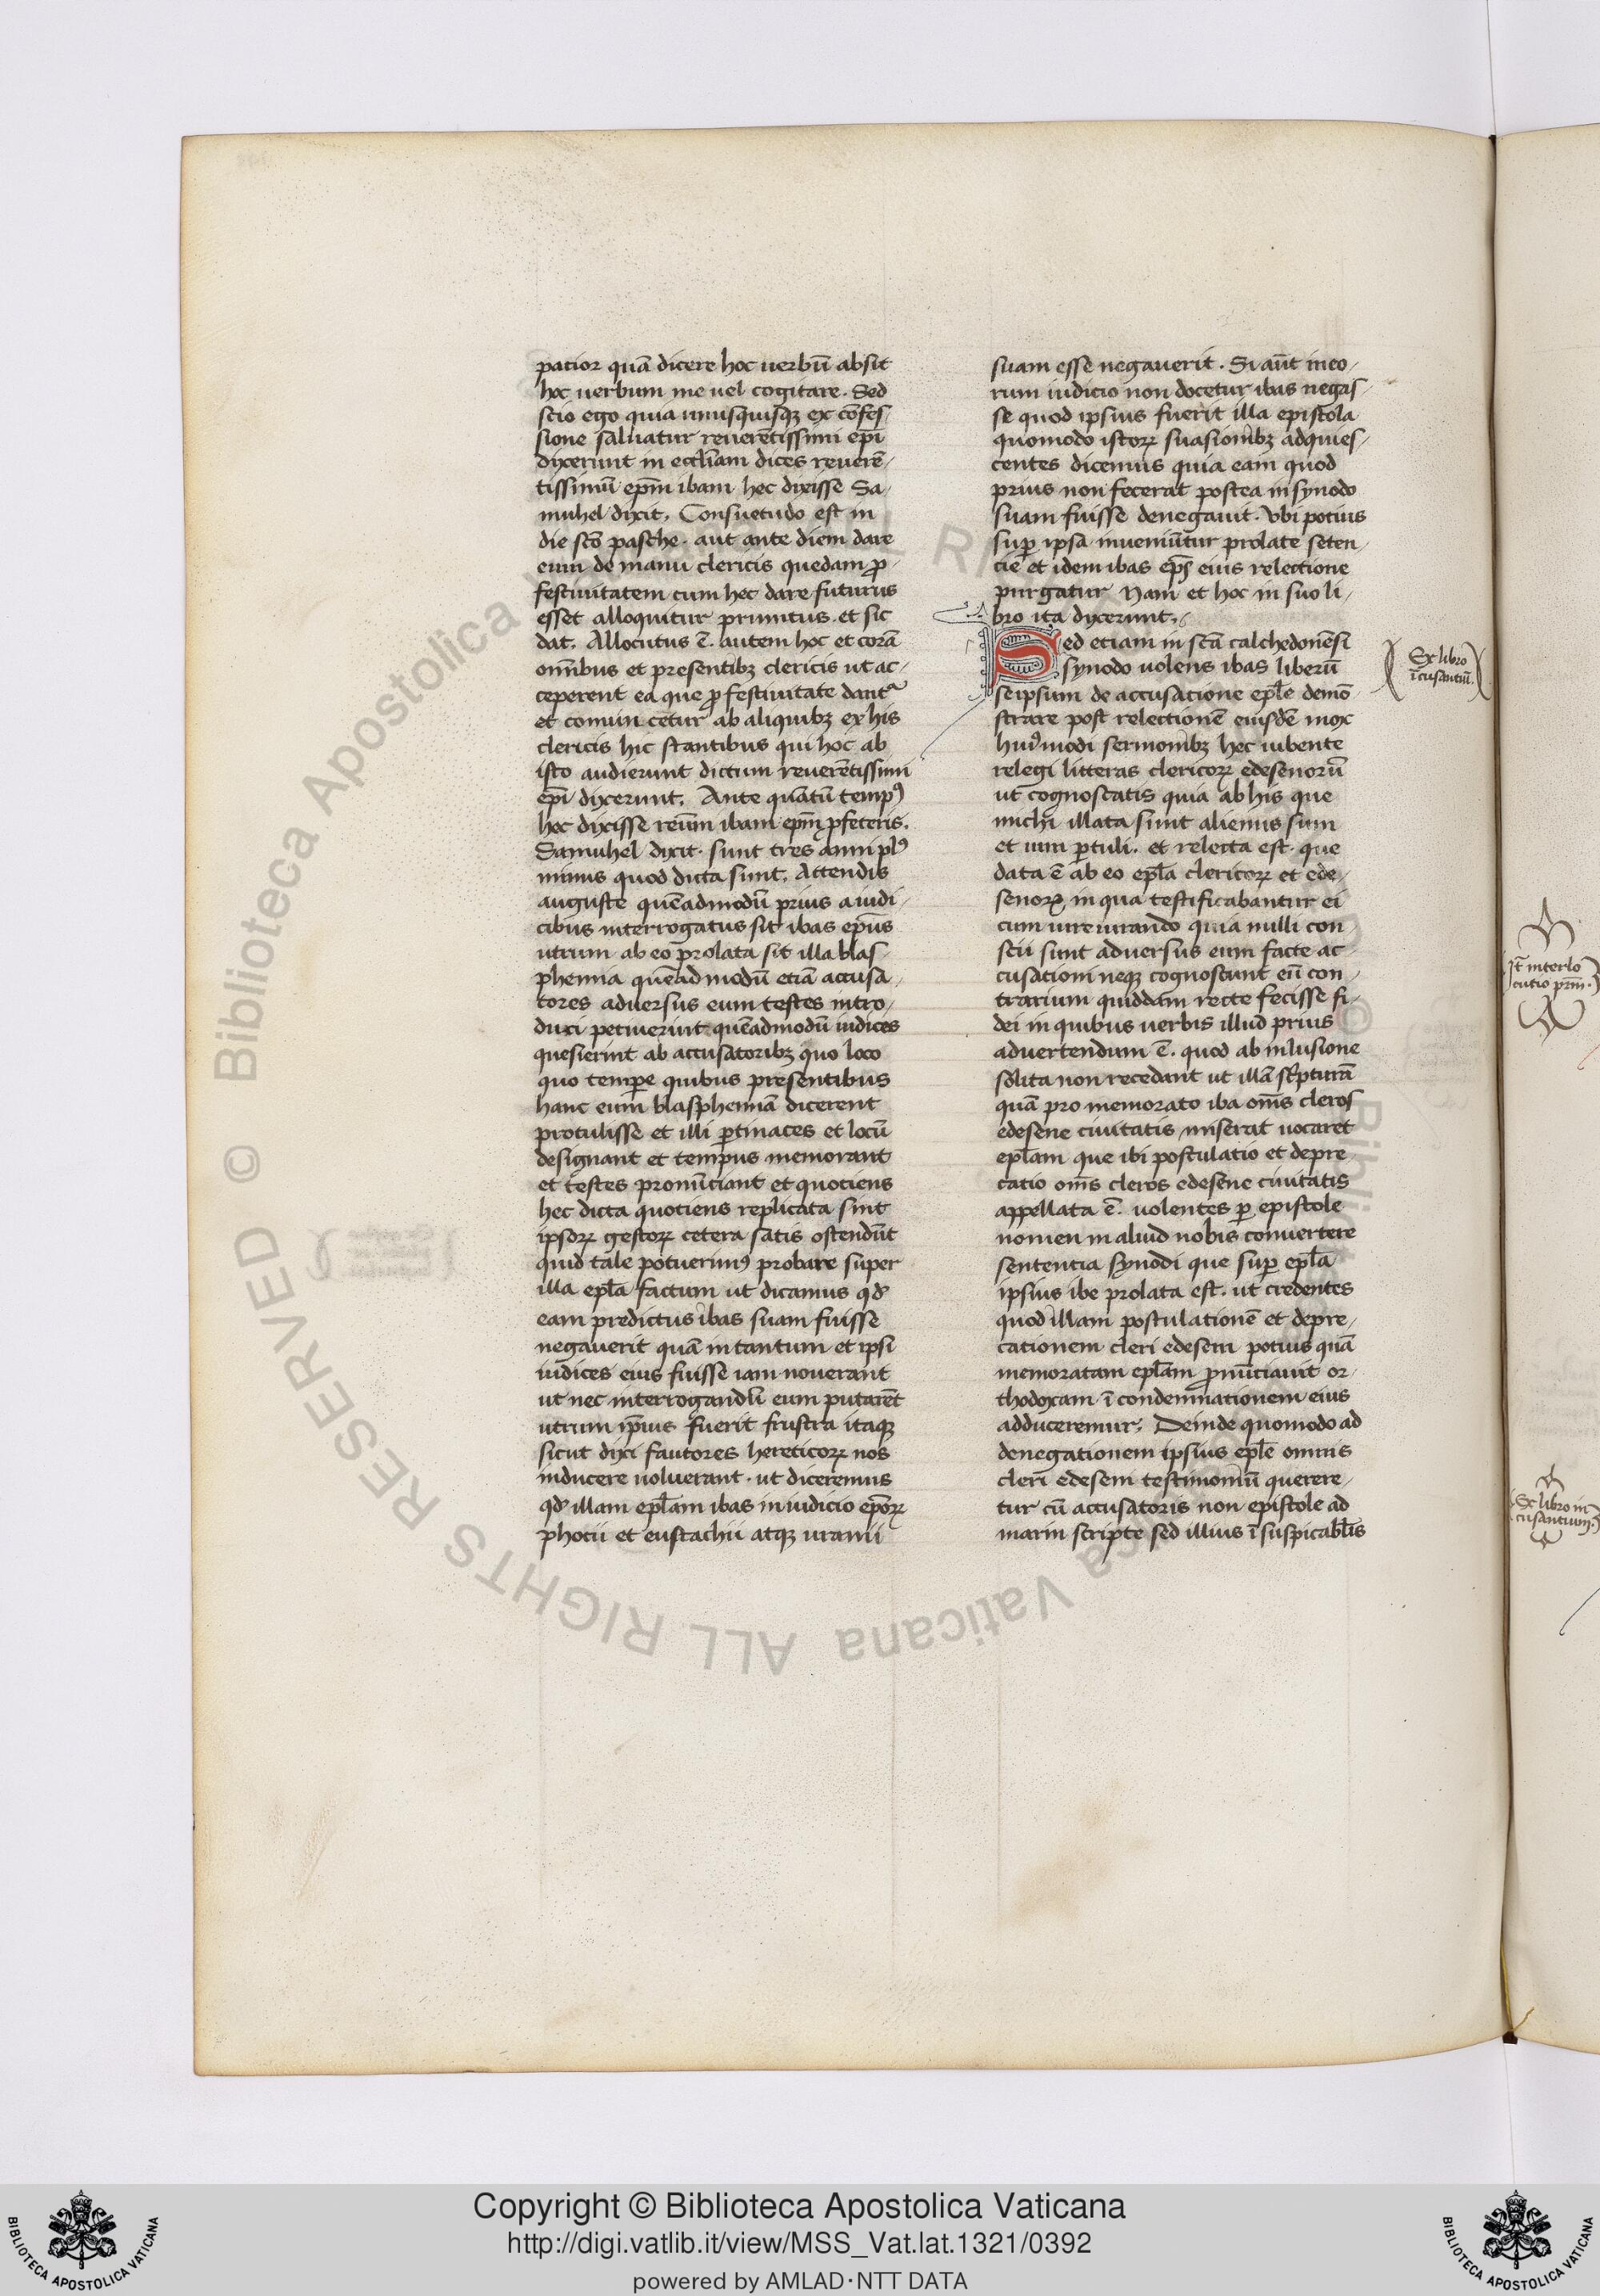 patior quā dicere hoc uerbū absit
hoc uerbum me uel cogitare. Sed
scio ego quia unusquisqꝫ ex cōfes-
sione saluatur reuerētissimi epī
dixerunt in eccl̄iam dices reuerē-
tissimū ep̄m ibam hec dixisse Sa-
muhel dixit. Consuetudo est in
die scō pasche. aut ante diem dare
eum de manu clericis quedam ꝓ-
festiuitatem cum hec dare futurus
esset alloquitur primitus. et sic
dat. Allocutus ē. autem hoc et corā
omībus et presentibꝫ clericis ut ac-
ceperent ea que ꝓ festiuitate dantᷣ
et comūn cetur ab aliquibꝫ ex his
clericis hic stantibus qui hoc ab
isto audierunt dictum reuerētissimi
epī dixerunt. Ante quātū tempꝰ
hec dixisse reūm ibam ep̄m ꝓfeteris.
Samuhel dixit. sunt tres anni plꝰ
minus quod dicta sunt. Attendis
auguste quēadmodū prius a iudi-
cibus interrogatus sit ibas epūs
utrum ab eo prolata sit illa blas-
phemia quēad modū etiā accusa-
tores aduersus eum testes intro-
duxi petiuerint quēadmodū iudices
quesierint ab accusatoribꝫ quo loco
quo tempe quibus presentibus
hanc eum blasphemiā dicerent
protulisse et illi ꝑtinaces et locū
designant et tempus memorant
et testes pronūciant et quotiens
hec dicta quotiens replicata sint
ipsoꝝ gestoꝝ cetera satis ostendūt
quid tale potuerimꝰ probare super
illa epl̄a factum ut dicamus qd̵
eam predictus ibas suam fuisse
negauerit quā in tantum et ipsi
iudices eius fuisse iam nouerant
ut nec interrogandū eum putarēt
utrum ip̄ius fuerit frustra itaqꝫ
sicut dixi fautores hereticoꝝ nos
inducere uoluerant. ut diceremus
qd̵ illam epl̄am ibas in iudicio epōꝝ
photii et eustachii atqꝫ uranii
suam esse negauerit. Si aūt in eo-
rum iudicio non docetur ibas negas-
se quod ipsius fuerit illa epistola
quomodo istoꝝ suasionibꝫ adquies-
centes dicemus quia eam quod
prius non fecerat postea in synodo
suam fuisse denegauit. Vbi potius
suꝑ ipsa inueniūtur prolate seten-
cie et idem ibas ep̄s eius relectione
purgatur Nam et hoc in suo li-
bro ita dixerunt.
Sed etiam in scā calchedonēsi
synodo uolens ibas liberū
seipsum de accusatione epl̄e demō
strare post relectionē eiusdē mox
huꝰmodi sermonibꝫ hec iubente
relegi litteras clericoꝝ edesenorū
ut cognoscatis quia ab his que
michi illata sunt alienus sum
et uim ꝑtuli. et relecta est. que
data ē ab eo epl̄a clericoꝝ et ede-
senoꝝ in qua testificabantur ei
cum iureiurando quia nulli con
scii sunt aduersus eum facte ac-
cusationi neqꝫ cognoscunt eū con-
trarium quiddam recte fecisse fi-
dei in quibus uerbis illud prius
aduertendum ē. quod ab inlusione
solita non recedant ut illā scͥpturā
quā pro memorato iba om̄s cleros
edesene ciuitatis miserat uocaret
epl̄am que ibi postulatio et depre
catio om̄s cleros edesene ciuitatis
appellata ē. uolentes ꝑ epistole
nomen in aliud nobis conuertere
sententia synodi que suꝑ epl̄a
ipsius ibe prolata est. ut credentes
quod illam postulationē et depre-
cationem cleri edeseni potius quā
memoratam epl̄am ꝓnūciauit or-
thodoxam ī condemnationem eius
adduceremur. Deinde quomodo ad
denegationem ipsius epl̄e omnis
cleri edeseni testimoniū querere-
tur cū accusatoris non epistole ad
marin scripte sed illius ī suspicabl̄is
Ex libro
īcusantiū.
It̄ interlo
cutio prīm.
Ex libro in
cusantium.
© Biblioteca Apostolica Vaticana ALL RIGHTS RESERVED
Copyright © Biblioteca Apostolica Vaticana
http://digi.vatlib.it/view/MSS_Vat.lat.1321/0392
powered by AMLAD·NTT DATA
BIBLIOTECA APOSTOLICA VATICANA
BIBLIOTECA APOSTOLICA VATICANA